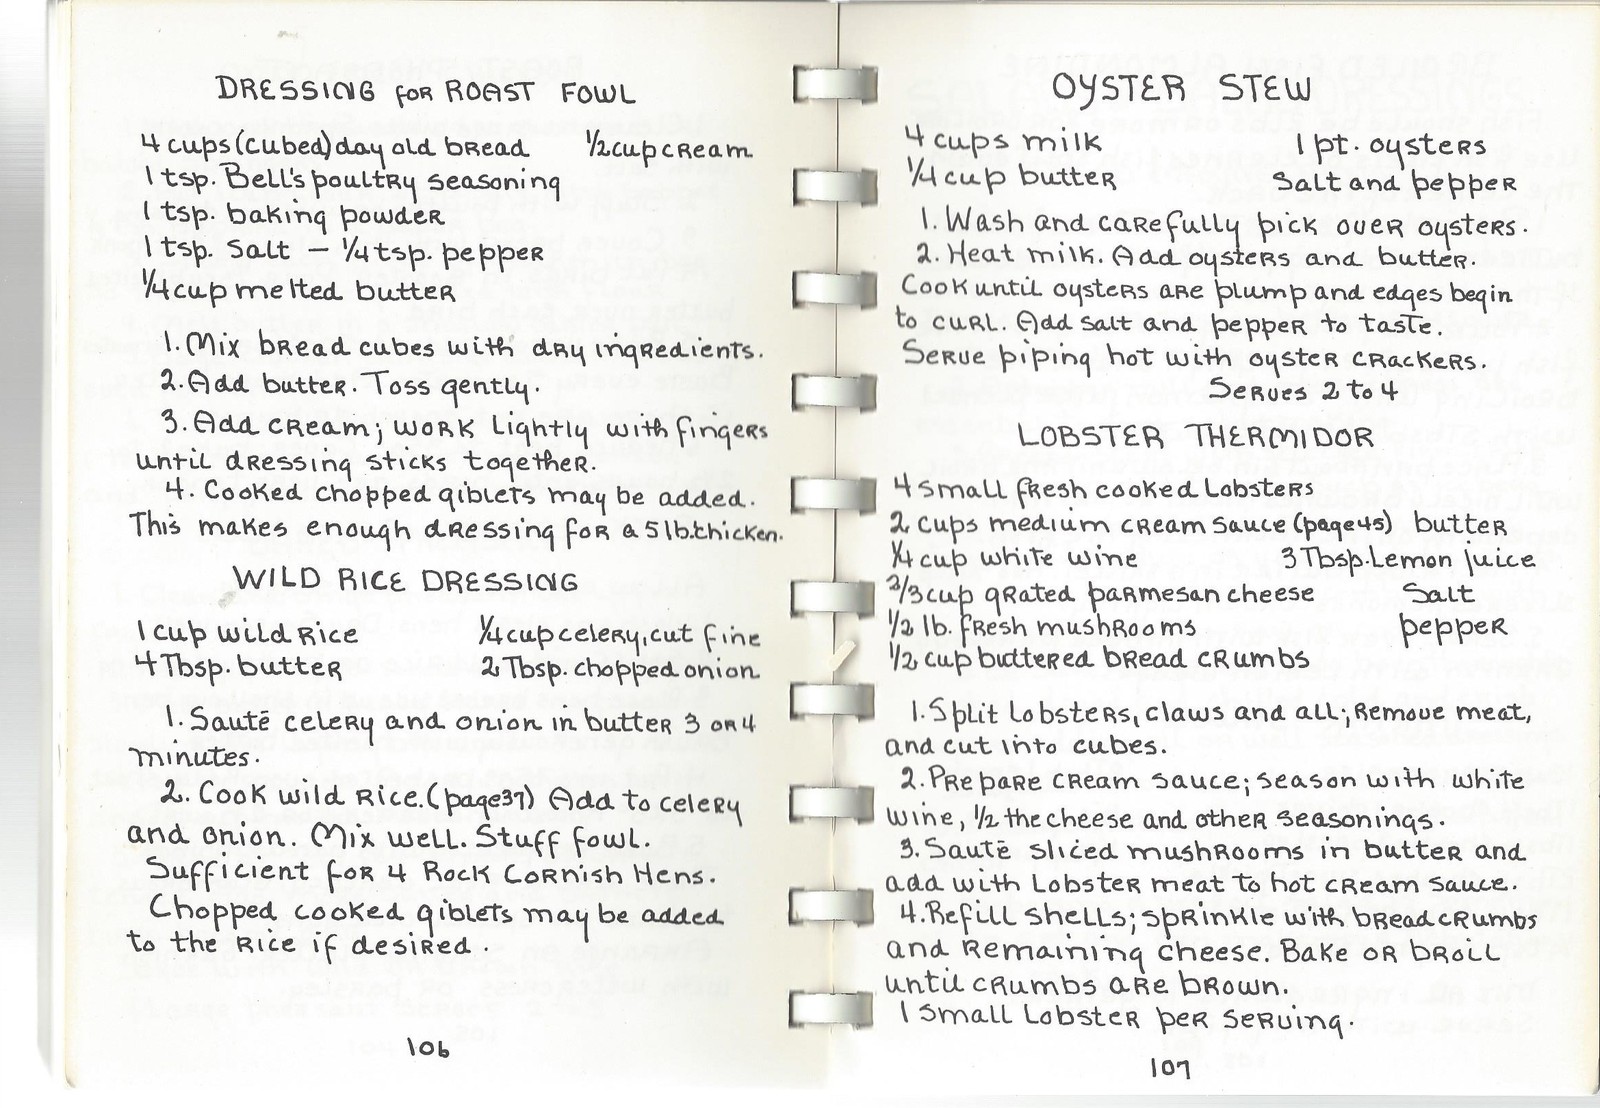 DRESSING FOR ROAST FOWL
4 cups (cubed) day old bread 1/2 cup cream
1 tsp. Bell's poultry seasoning
1 tsp. baking powder
1 tsp. salt — 1/4 tsp. pepper
1/4 cup melted butter
1. Mix bread cubes with dry ingredients.
2. Add butter. Toss gently.
3. Add cream; work lightly with fingers
until dressing sticks together.
4. Cooked chopped giblets may be added.
This makes enough dressing for a 5 lb. chicken.
WILD RICE DRESSING
1 cup wild rice 1/4 cup celery, cut fine
4 Tbsp. butter 2 Tbsp. chopped onion
1. Sauté celery and onion in butter 3 or 4
minutes.
2. Cook wild rice. (page 37) Add to celery
and onion. Mix well. Stuff fowl.
Sufficient for 4 Rock Cornish Hens.
Chopped cooked giblets may be added
to the rice if desired.
106
OYSTER STEW
4 cups milk 1 pt. oysters
1/4 cup butter Salt and pepper
1. Wash and carefully pick over oysters.
2. Heat milk. Add oysters and butter.
Cook until oysters are plump and edges begin
to curl. Add salt and pepper to taste.
Serve piping hot with oyster crackers.
Serves 2 to 4
LOBSTER THERMIDOR
4 small fresh cooked lobsters
2 cups medium cream sauce (page 45) butter
1/4 cup white wine 3 Tbsp. Lemon juice
2/3 cup grated parmesan cheese Salt
1/2 lb. fresh mushrooms pepper
1/2 cup buttered bread crumbs
1. Split lobsters, claws and all; remove meat,
and cut into cubes.
2. Prepare cream sauce; season with white
wine, 1/2 the cheese and other seasonings.
3. Sauté sliced mushrooms in butter and
add with lobster meat to hot cream sauce.
4. Refill shells; sprinkle with bread crumbs
and remaining cheese. Bake or broil
until crumbs are brown.
1 small lobster per serving.
107